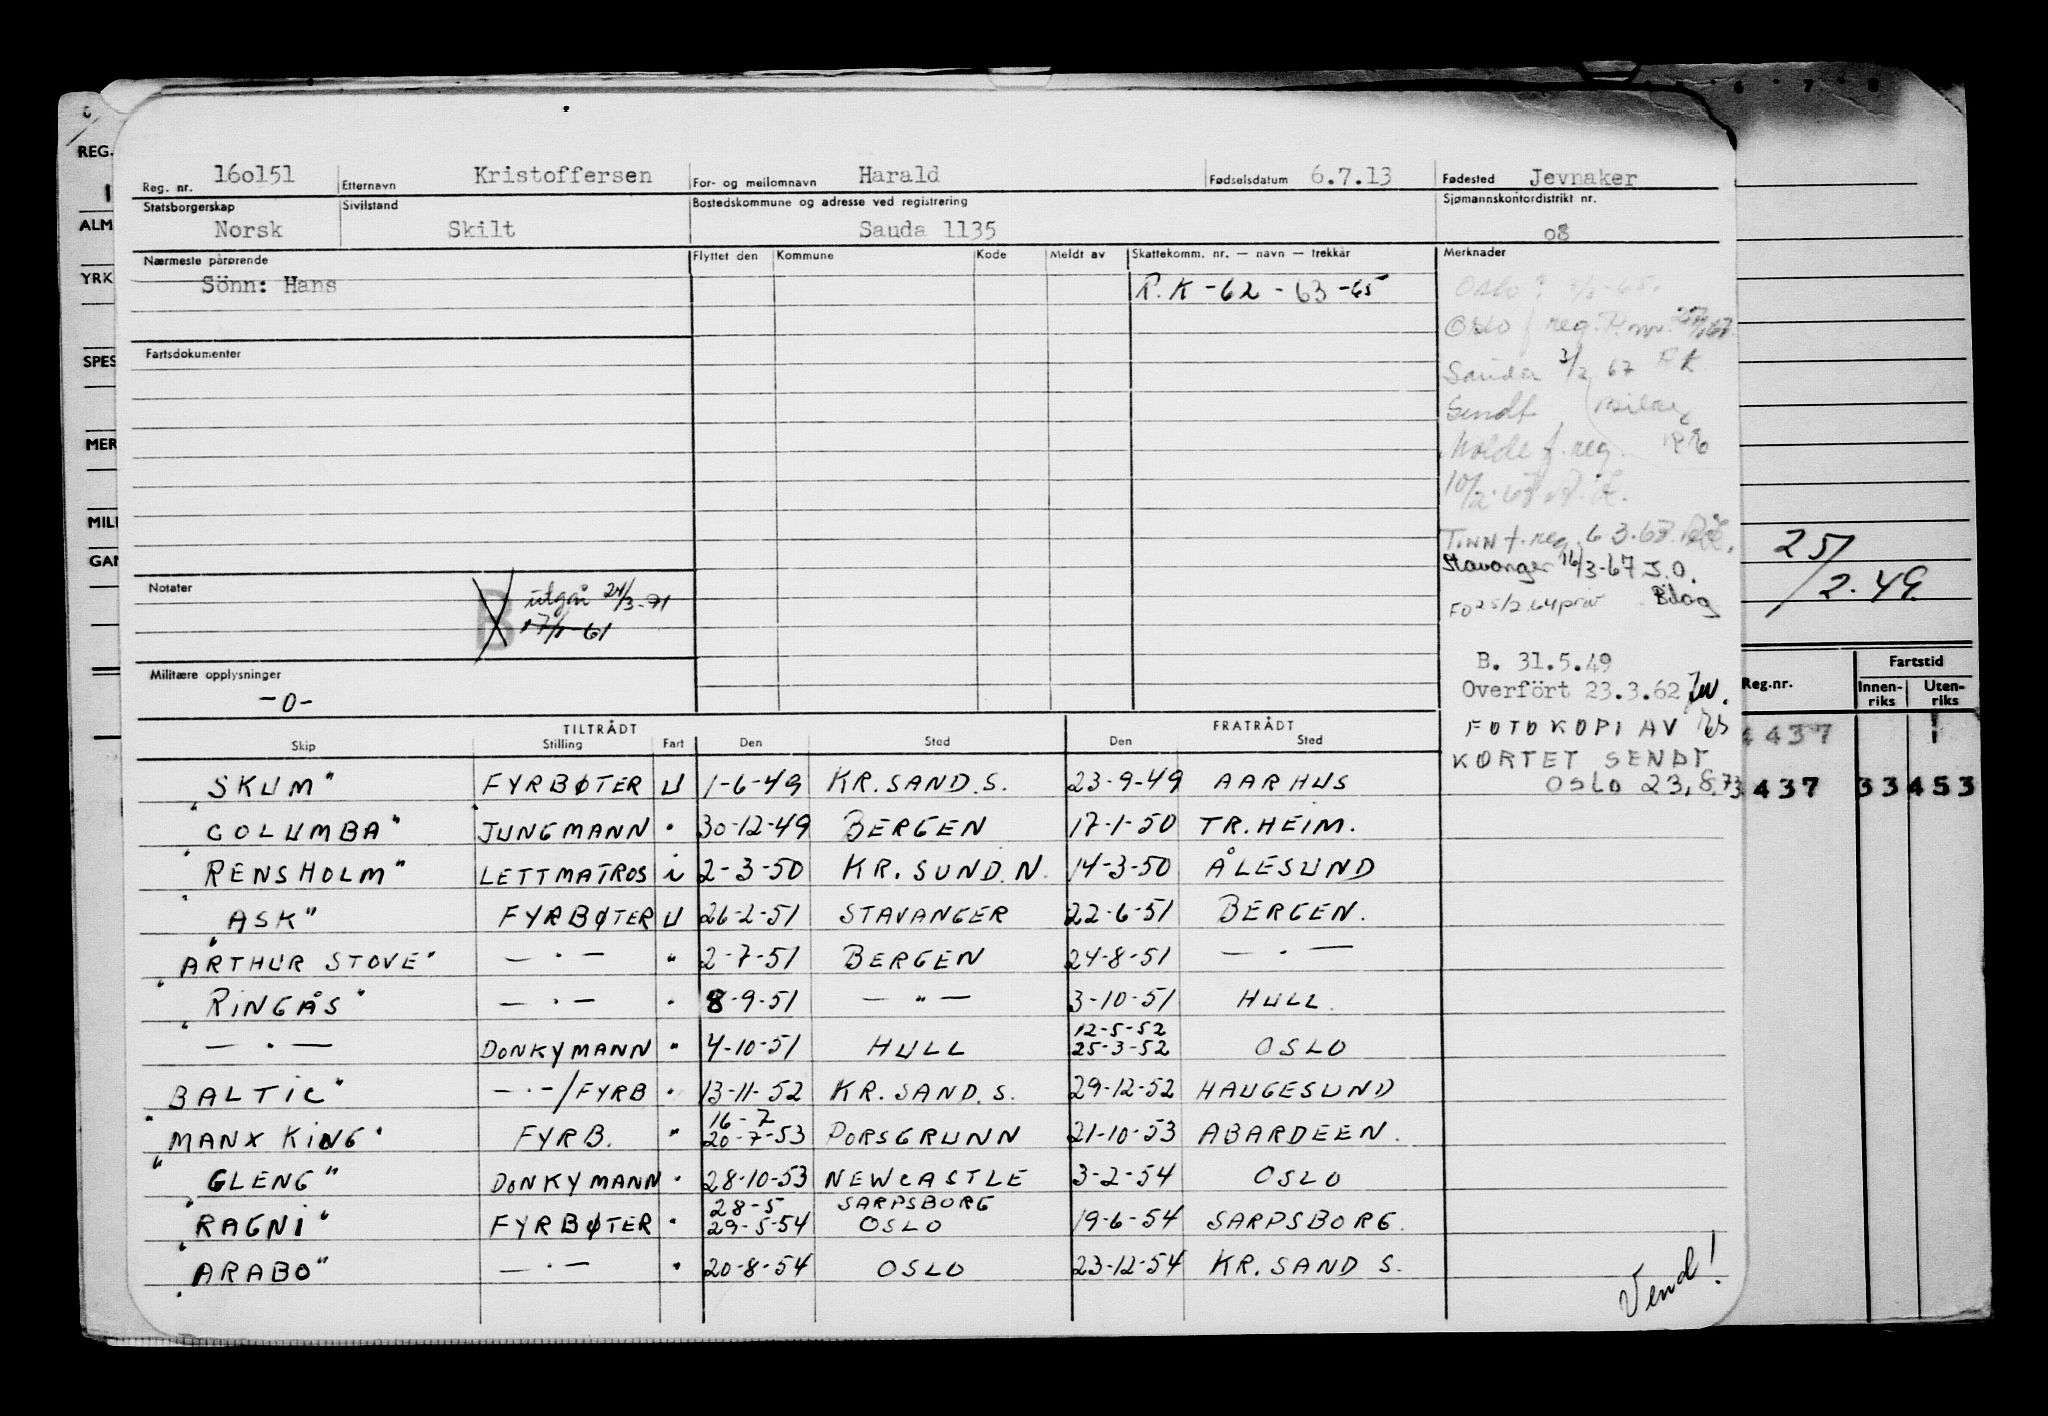 Reg. nr. 16o151 Etternavn Kristoffersen For- og mellomnavn Harald Fødselsdatum 6.7.13 Fødested Jevnaker
Statsborgerskap Norsk Sivilstand Skilt Bostedskommune og adresse ved registrering Sauda 1135 Sjømannskontordistrikt nr. o8
Nærmeste pårørende Flyttet den Kommune Kode Meldt av Skattekomm. nr. — navn — trekkår Merknader
Sönn: Hans R.K -62 - 63 -65
Oslo
Oslo f reg.
Sauda 3/2 67 RK
Sendt
Molde f. reg.
10/2.
Tinn f. reg. 6 3.67
Stavanger 16/3-67 J.O.
Bilag
B. 31.5.49
Overfört 23.3.62
FOTOKOPI AV
KORTET SENDT
OSLO 23,8.73
Fartsdokumenter
Notater
B utgår 24/3-71
Militære opplysninger
-0-
TILTRÅDT FRATRÅDT
Skip Stilling Fart Den Sted Den Sted
"SKUM" FYRBØTER U 1-6-49 KR.SAND.S. 23-9-49 AARHUS
"COLUMBA" JUNGMANN " 30-12-49 BERGEN 17-1-50 TR.HEIM.
"RENSHOLM" LETTMATROS i 2-3-50 KR.SUND.N. 14-3-50 ÅLESUND
"ASK" FYRBØTER U 26-2-51 STAVANGER 22-6-51 BERGEN.
"ARTHUR STOVE" — " — " 2-7-51 BERGEN 24-8-51 — " —
"RINGÅS" — " — " 8-9-51 — " — 3-10-51 HULL.
— " — DONKYMANN " 4-10-51 HULL 12-5-52 25-3-52 OSLO
"BALTIC" — " — /FYRB " 13-11-52 KR.SAND.S. 29-12-52 HAUGESUND
"MANX KING" FYRB. " 16-7 20-7-53 PORSGRUNN 21-10-53 ABARDEEN.
"GLENG" DONKYMANN " 28-10-53 NEWCASTLE 3-2-54 OSLO
"RAGNI" FYRBØTER " 28-5 29-5-54 SARPSBORG OSLO 19-6-54 SARPSBORG.
"ARABO" — " — " 20-8-54 OSLO 23-12-54 KR.SAND S.
Vend!
REG.
ALM
YRK
SPES
MER
MILI
GAN
6 7 8
25/2.49
Reg-nr. Fartstid
Innen-riks Uten-riks
4437 1
437 33 453